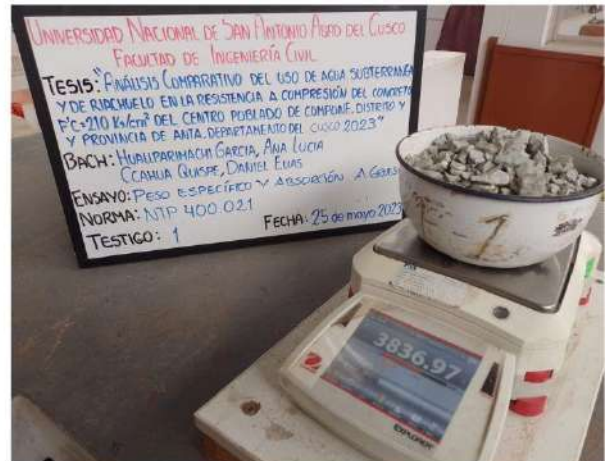 UNIVERSIDAD NACIONAL DE SAN ANTONIO ABAD DEL CUSCO
FACULTAD DE INGENIERÍA CIVIL
TESIS: "ANÁLISIS COMPARATIVO DEL USO DE AGUA SUBTERRANEA
Y DE RIACHUELO EN LA RESISTENCIA A COMPRESIÓN DEL CONCRETO
F'C=210 Kg/cm² DEL CENTRO POBLADO DE COMPONE, DISTRITO Y
PROVINCIA DE ANTA, DEPARTAMENTO DEL CUSCO 2023"
BACH: HUALLPARIMACHI GARCIA, ANA LUCIA
CCAHUA QUISPE, DANIEL ELIAS
ENSAYO: PESO ESPECÍFICO Y ABSORCIÓN A. GRUESO
NORMA: NTP 400.021
TESTIGO: 1
FECHA: 25 de mayo 2023
1
3836.97
OHAUS
EXPLORER